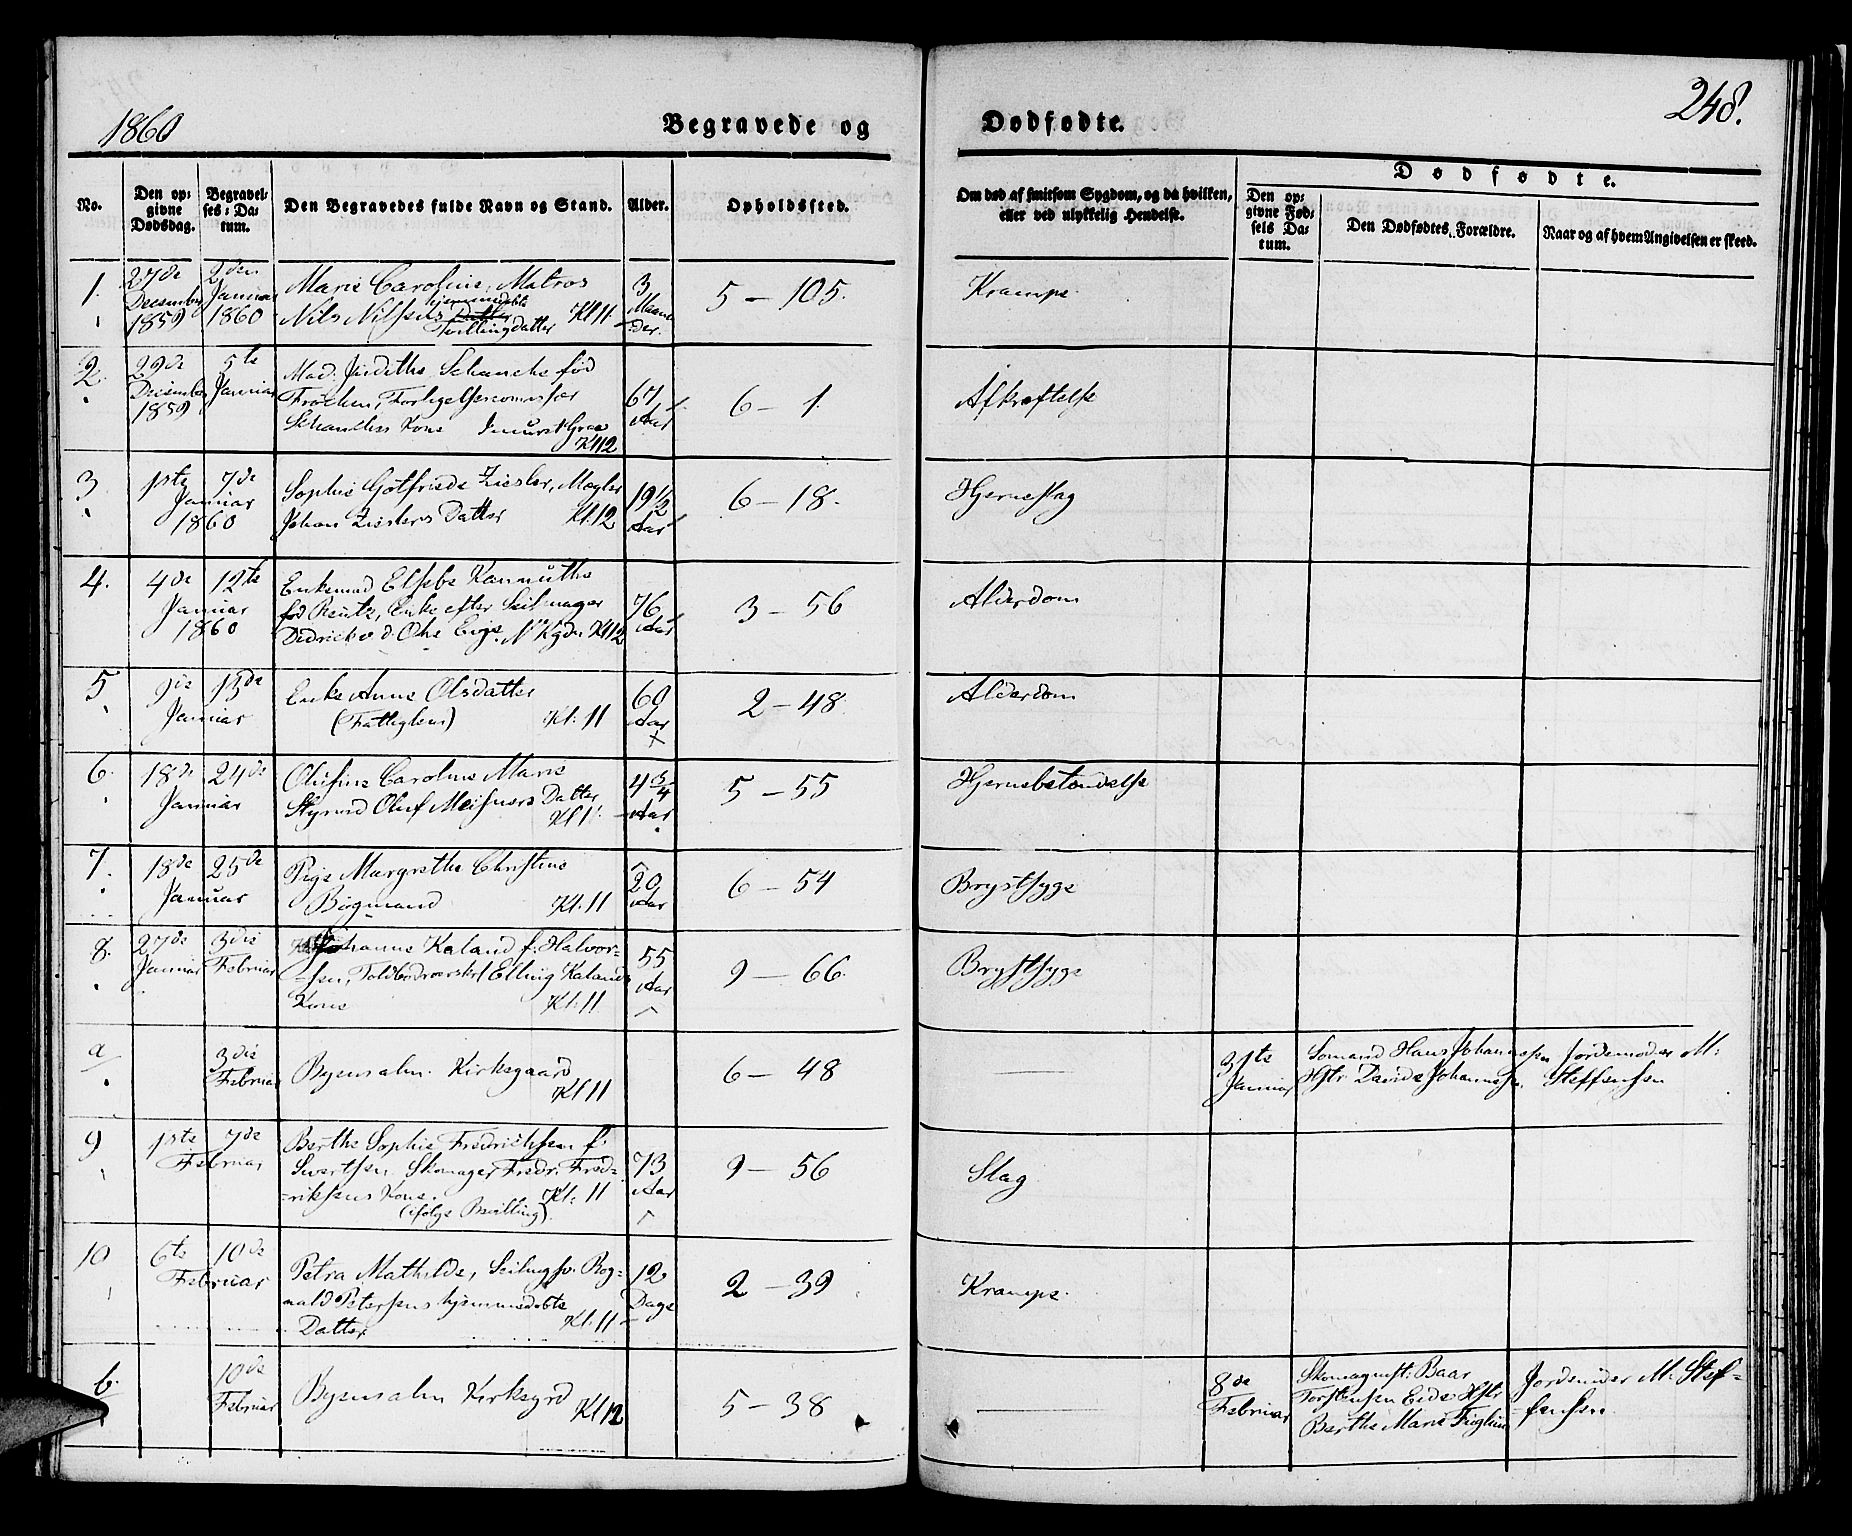 1860
Begravede og Dødfødte.
248.
No.
Den opgivne Dødsdag.
Begravelses-Datum.
Den Begravedes fulde Navn og Stand.
Alder.
Opholdssted.
Om død af smitsom Sygdom, og da hvilken,
eller ved ulykkelig Hendelse.
Dødfødte.
Den opgivne Fødsels Datum.
Den Dødfødtes Forældre.
Naar og af hvem Angivelsen er skeed.
1. 27de December 1859 2den Januar 1860
Marie Caroline, Matros
Nils Nilsens hjemmedøbte Tvillingdatter Kl 11
3 Maaneder.
5 – 105.
Krampe.
2. 29de December 1859 5te Januar
Mad. Judithe Schanche fød
Frøchen, Forligelsescommissær
Schanches Kone Graa Kl 12
67 Aar
6 – 1.
Afkræftelse
3 1ste Januar 1860 7de
Sophie Gotfriede Ziesler, Mægler
Johan Zieslers Datter Kl. 12
19 1/2 Aar
6 – 18.
Hjerneslag
4. 4de Januar 1860 12te
Enkemad Elsebe Kanmuthe
fød Reutz, Enke efter Seilmager
Didrick v. d. Ohe Kl 12
76 Aar
3 – 56
Alderdom
5 9de Januar 13de
Enke Anne Olsdatter
(Fattiglem) Kl: 11
60 Aar
2 – 48.
Alderdom
6. 18de Januar 24de
Olufine Caroline Marie
Styrmd Oluf Meisners Datter
Kl 11
4 3/4 Aar
5 – 55
Hjernebetændelse
7. 18de Januar 25de
Pige Margrethe Christine
Bøgmand Kl. 11
20 Aar
6 – 54
Brystsyge
8. 27de Januar 3die Februar
Johanne Kaland f: Halvor-
sen, Toldbodværskrl Elling Kalands
Kone Kl: 11
55 Aar
9 – 66.
Brystsyge
a 3die Februar
Byens alm. Kirkegaard
Kl 11
6 – 48
31te Januar
Sømand Hans Johannesen
Hstr Davide Johannesen.
Jordemoder M:
Steffensen
9 1ste Februar 7de
Berthe Sophie Fredrichsen f:
Sivertsen. Skomager Fredr. Fred=
=riksens Kone. Kl: 11
(ifølge Bevilling).
73 Aar
9 – 56
Slag
10 6te Februar 10de
Petra Mathilde, Seilmgsv. Rog=
nald Petersens hjemmedøbte
Datter Kl. 11
12 Dage
2 – 39
Krampe.
b. 10de Februar
Byens alm Kirkegrd Kl 12
5 – 38
8de Februar
Skomagerst: Baar
Torstensen Eide Hstr
Berthe Marie
Jordemoder M. Stef=
fensen.